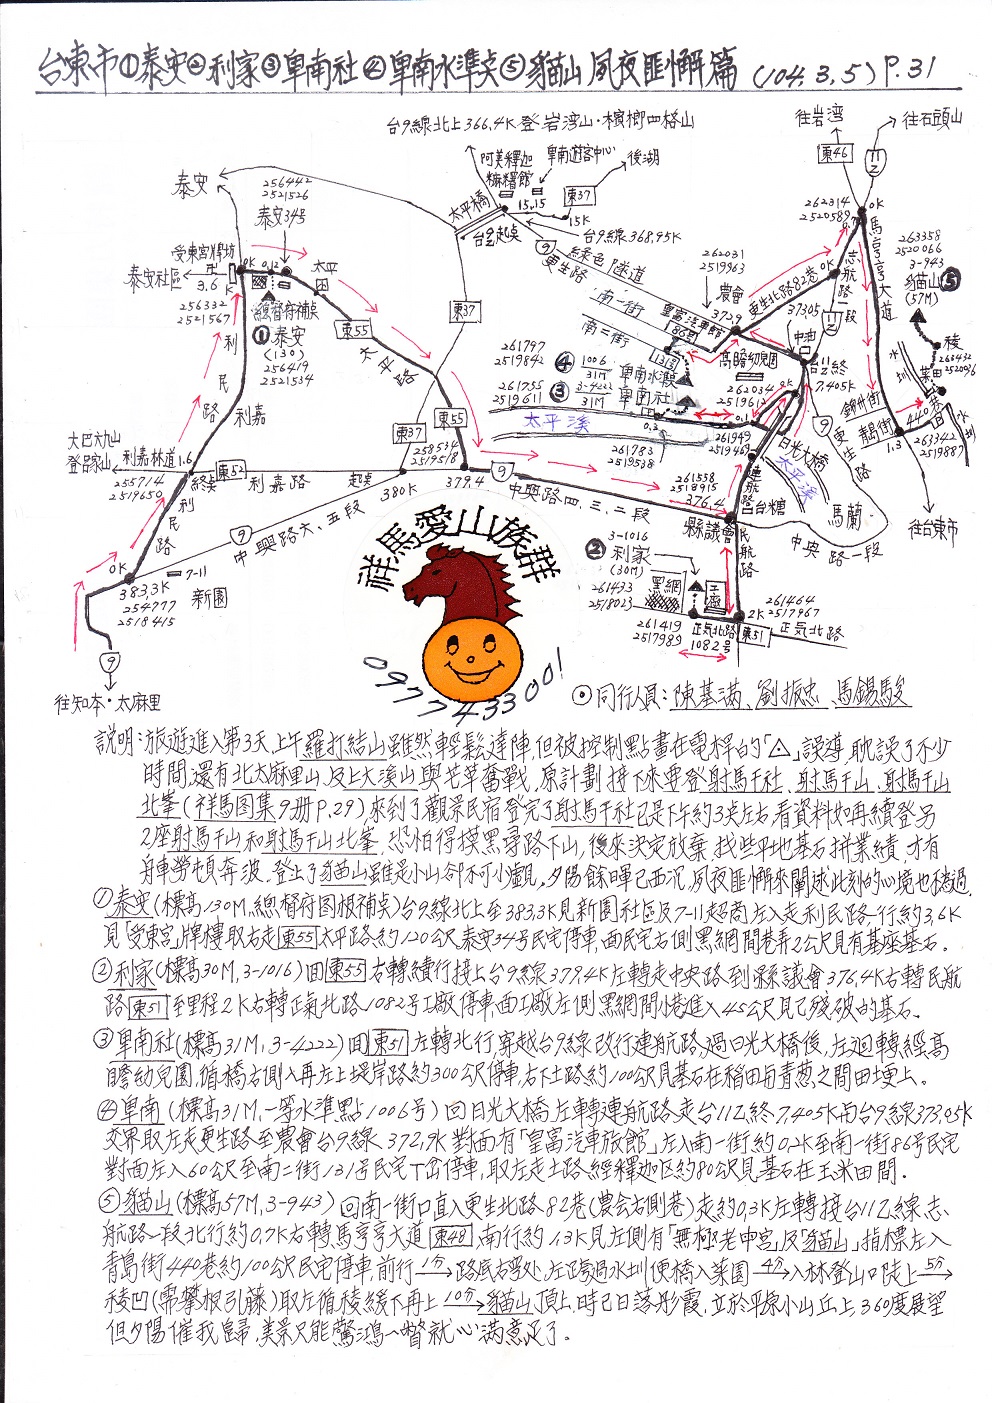 台東市①泰安②利家③卑南社④卑南水準点⑤貓山 夙夜匪懈篇 (104.3.5) P.31
台9線北上366.4K登岩湾山・檳榔四格山
往岩湾
往石頭山
東46
11乙
阿美釋迦
麻糬館
卑南遊客中心
後湖
東37
15.15
15K
太平橋
台9起点
台9線368.95K
9
綠色隧道
更生路
泰安
256442
2521526
泰安34号
受東宮牌坊
泰安社區
3.6K
0.12
太平
256332
2521567
總督府補点
①泰安
(130)
256419
2521534
東55
太平路
東37
利民路
利嘉
大巴六九山
登呂家山
利嘉林道1.6
255714
2519650
終点
東52
利嘉路
起点
東37
258534
2519518
東55
380K
379.4
9
中興路四、三、二段
中興路六、五段
利民路
0K
383.3K
254777
2518415
7-11
新園
9
往知本・太麻里
262031
2519963
農會
3729
南一街
南二街
皇富汽車館
86号
131号
261797
2519842
④1006/31M卑南水準点
261755
2519611
③3-4222/31M卑南社
太平溪
0.3
261783
2519538
高瞻幼兒園
262034
2519612
0K
0.1
261949
2519469
日光大橋
太平溪
連航路
261558
2518915
376.4
縣議會
台糖
馬蘭
中興路一段
262314
2520589
0K
0.7
志航路一段
更生北路82巷
0K
37305
11乙
中油
台11乙終
7.405K
9
更生路
馬亨亨大道
263358
2520066
3-943
貓山⑤
(57M)
稜
263432
2520096
菜田
水圳
錦州街
青島街
440巷
1.3
263342
2519887
往台東市
民航路
②3-1016
利家
(30M)
261433
2518023
黑網
工廠
261419
2517989
正気北路
1082号
2K
261464
2517967
東51
正気北路
祥馬愛山族群
0977433001
⊙同行人員：陳基滿、劉振忠、馬錫駿
說明：旅遊進入第3天，上午羅打結山雖然輕鬆達陣，但被控制點畫在電桿的「△」誤導，耽誤了不少
時間，還有北太麻里山、及上大溪山與芒草奮戰，原計劃接下來要登射馬干社、射馬干山、射馬干山
北峯(祥馬图集9册P.29)來到了觀景民宿登完了射馬干社已是下午約3点左右，看資料如再續登另
2座射馬干山和射馬干山北峯，恐怕得摸黑尋路下山，後來決定放棄，找些平地基石拼業績，才有
舟車勞頓奔波，登上了貓山雖是小山卻不可小覷，夕陽餘暉已西沉，夙夜匪懈來闡述此刻的心境也不為過。
①泰安(標高130M，總督府图根補点)台9線北上至383.3K見新園社區及7-11超商左入走利民路一行約3.6K
見「受東宮」牌樓取右走東55太平路約120公尺泰安34号民宅停車，面民宅右側黑網間巷弄2公尺見有基座基石。
②利家(標高30M，3-1016)回東55右轉續行接上台9線379.4K左轉走中央路到縣議會376.4K右轉民航
路東51至里程2K右轉正氣北路1082号工廠停車，面工廠左側黑網間小巷進入45公尺見已殘破的基石。
③卑南社(標高31M，3-4222)回東51左轉北行穿越台9線改行連航路，過日光大橋後，左迴轉經高
瞻幼兒園，循橋右側入再左上堤岸路約300公尺停車，右下土路約100公尺見基石在稻田與青蔥之間田埂上。
④卑南(標高31M，一等水準點1006号)回日光大橋左轉連航路走台11乙終7.405K與台9線373.05K
交界取左走更生路至農會台9線372.9K對面有「皇富汽車旅館」左入南一街約0.2K至南一街86号民宅
對面左入60公尺至南二街131号民宅丁岔停車，取左走土路經釋迦区約80公尺見基石在玉米田間。
⑤貓山(標高57M，3-943)回南一街口直入更生北路82巷(農会右側巷)走約0.3K左轉接台11乙線志
航路一段北行約0.7K右轉馬亨亨大道東48南行約1.3K見左側有「無極老中宮」及「貓山」指標左入
青島街440巷約100公尺民宅停車，前行1分→路底右彎处，左跨過水圳便橋入菜園4分→入林登山口陡上5分→
稜凹(需攀根引藤)取左循稜緩下再上10分→貓山頂上，時已日落彤霞，立於平原小山丘上，360度展望
但夕陽催我歸，美景只能驚鴻一瞥就心滿意足了。